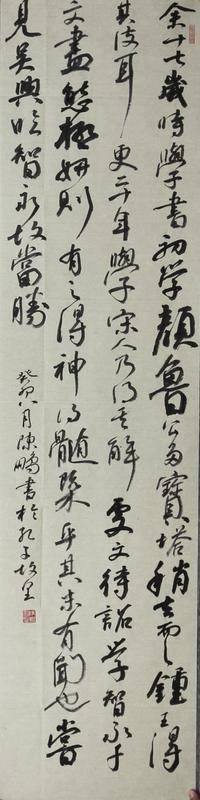 余十七歲時學書初學顏魯公多寶塔稍去而之鍾王得
其皮耳更二十年學宋人乃得其解處文待詔學智永千
文盡態極妍則有之得神得髓槩乎其未有聞也嘗
見吳興臨智永故當勝
癸卯八月陳鵬書於孔子故里